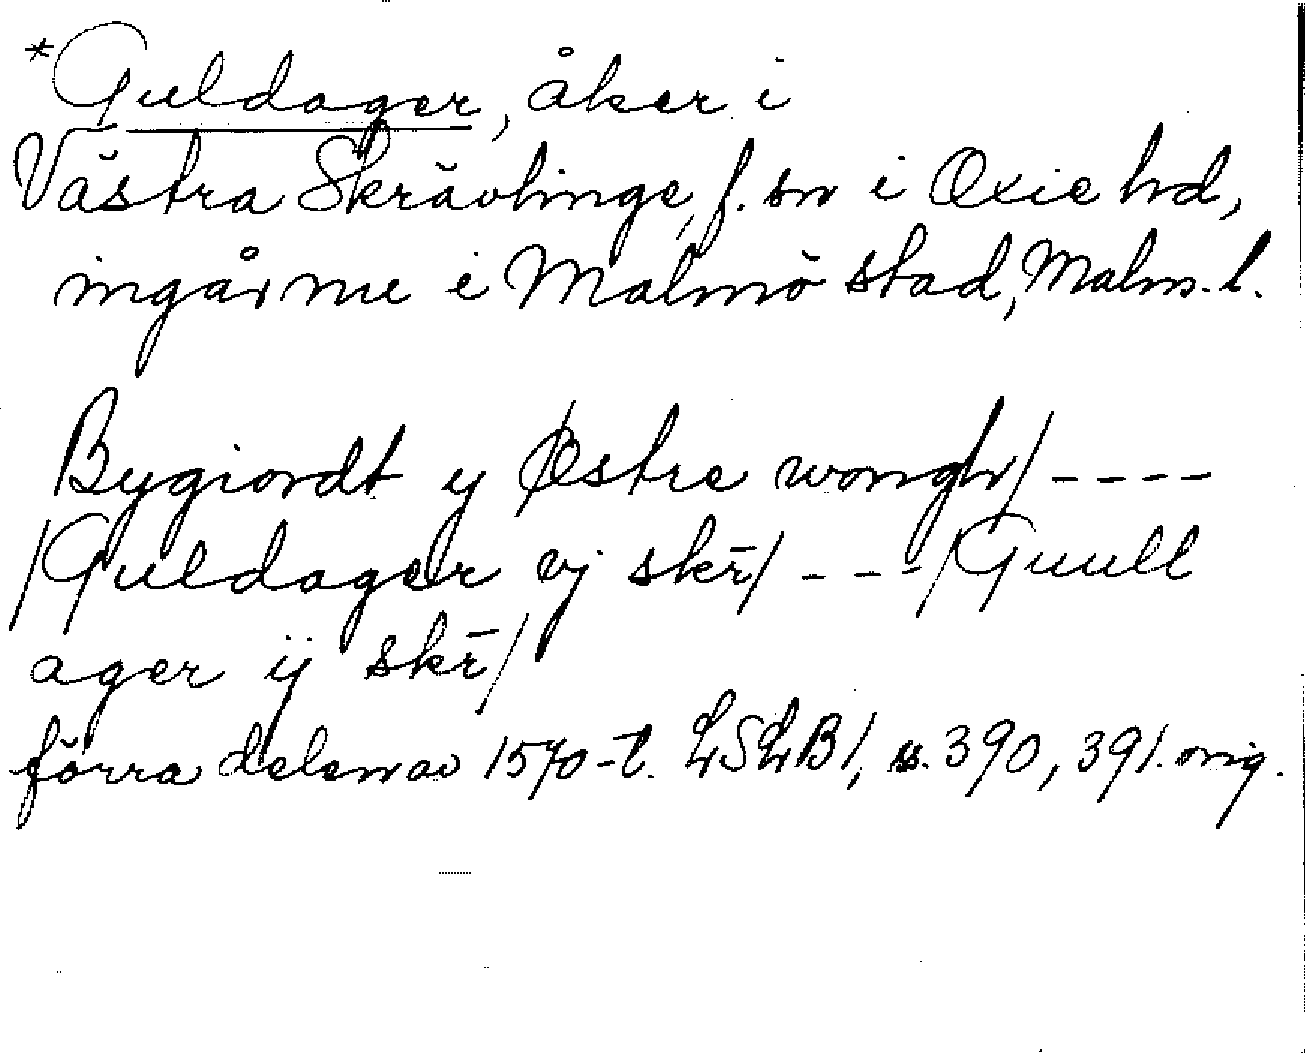 *Guldager, åker i
Västra Skrävlinge, f. sn i Oxie hd,
ingår nu i Malmö stad, Malm. l.
Bygiordt y Østre wongh/ ----
/Guldager vj skr̄/ --- /Guull
ager ij skr̄/
förra delen av 1570-t. LSLB1, s. 390, 391. orig.